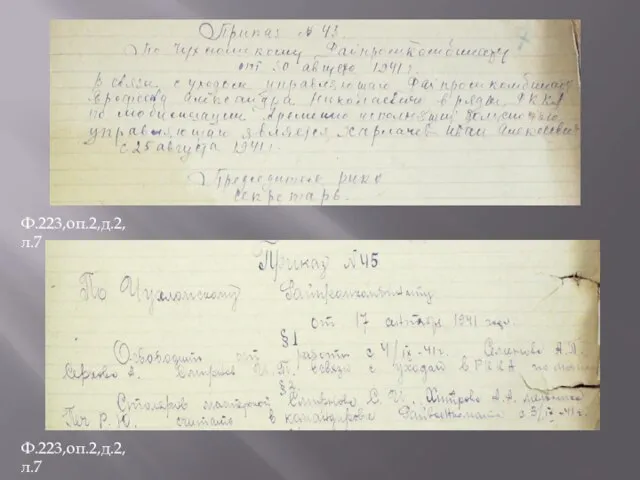 Приказ № 43.
по Чухломскому Райпромкомбинату
от 30 августа 1941 г.
В связи с уходом управляющего Райпромкомбината
Александра Николаевича в ряды РККА
по мобилизации временно исполняющий
управляющего является Харлачев Иван Алексеевич
с 25 августа 1941 г.
Председатель рика
секретарь.
Ф.223,оп.2,д.2,
л.7
Приказ № 45
По Чухломскому Райпромкомбинату
от 17 сентября 1941 года.
§1
Освободить от работы с 4/IX-41 г. А.П.
Дмитриев И.П. в связи с уходом в РККА по
§2
Столяров мастерской Смирнова С.И. Хитрова А.А.
Р.Ю. считать в командировке с 3/IX-41 г.
Ф.223,оп.2,д.2,
л.7